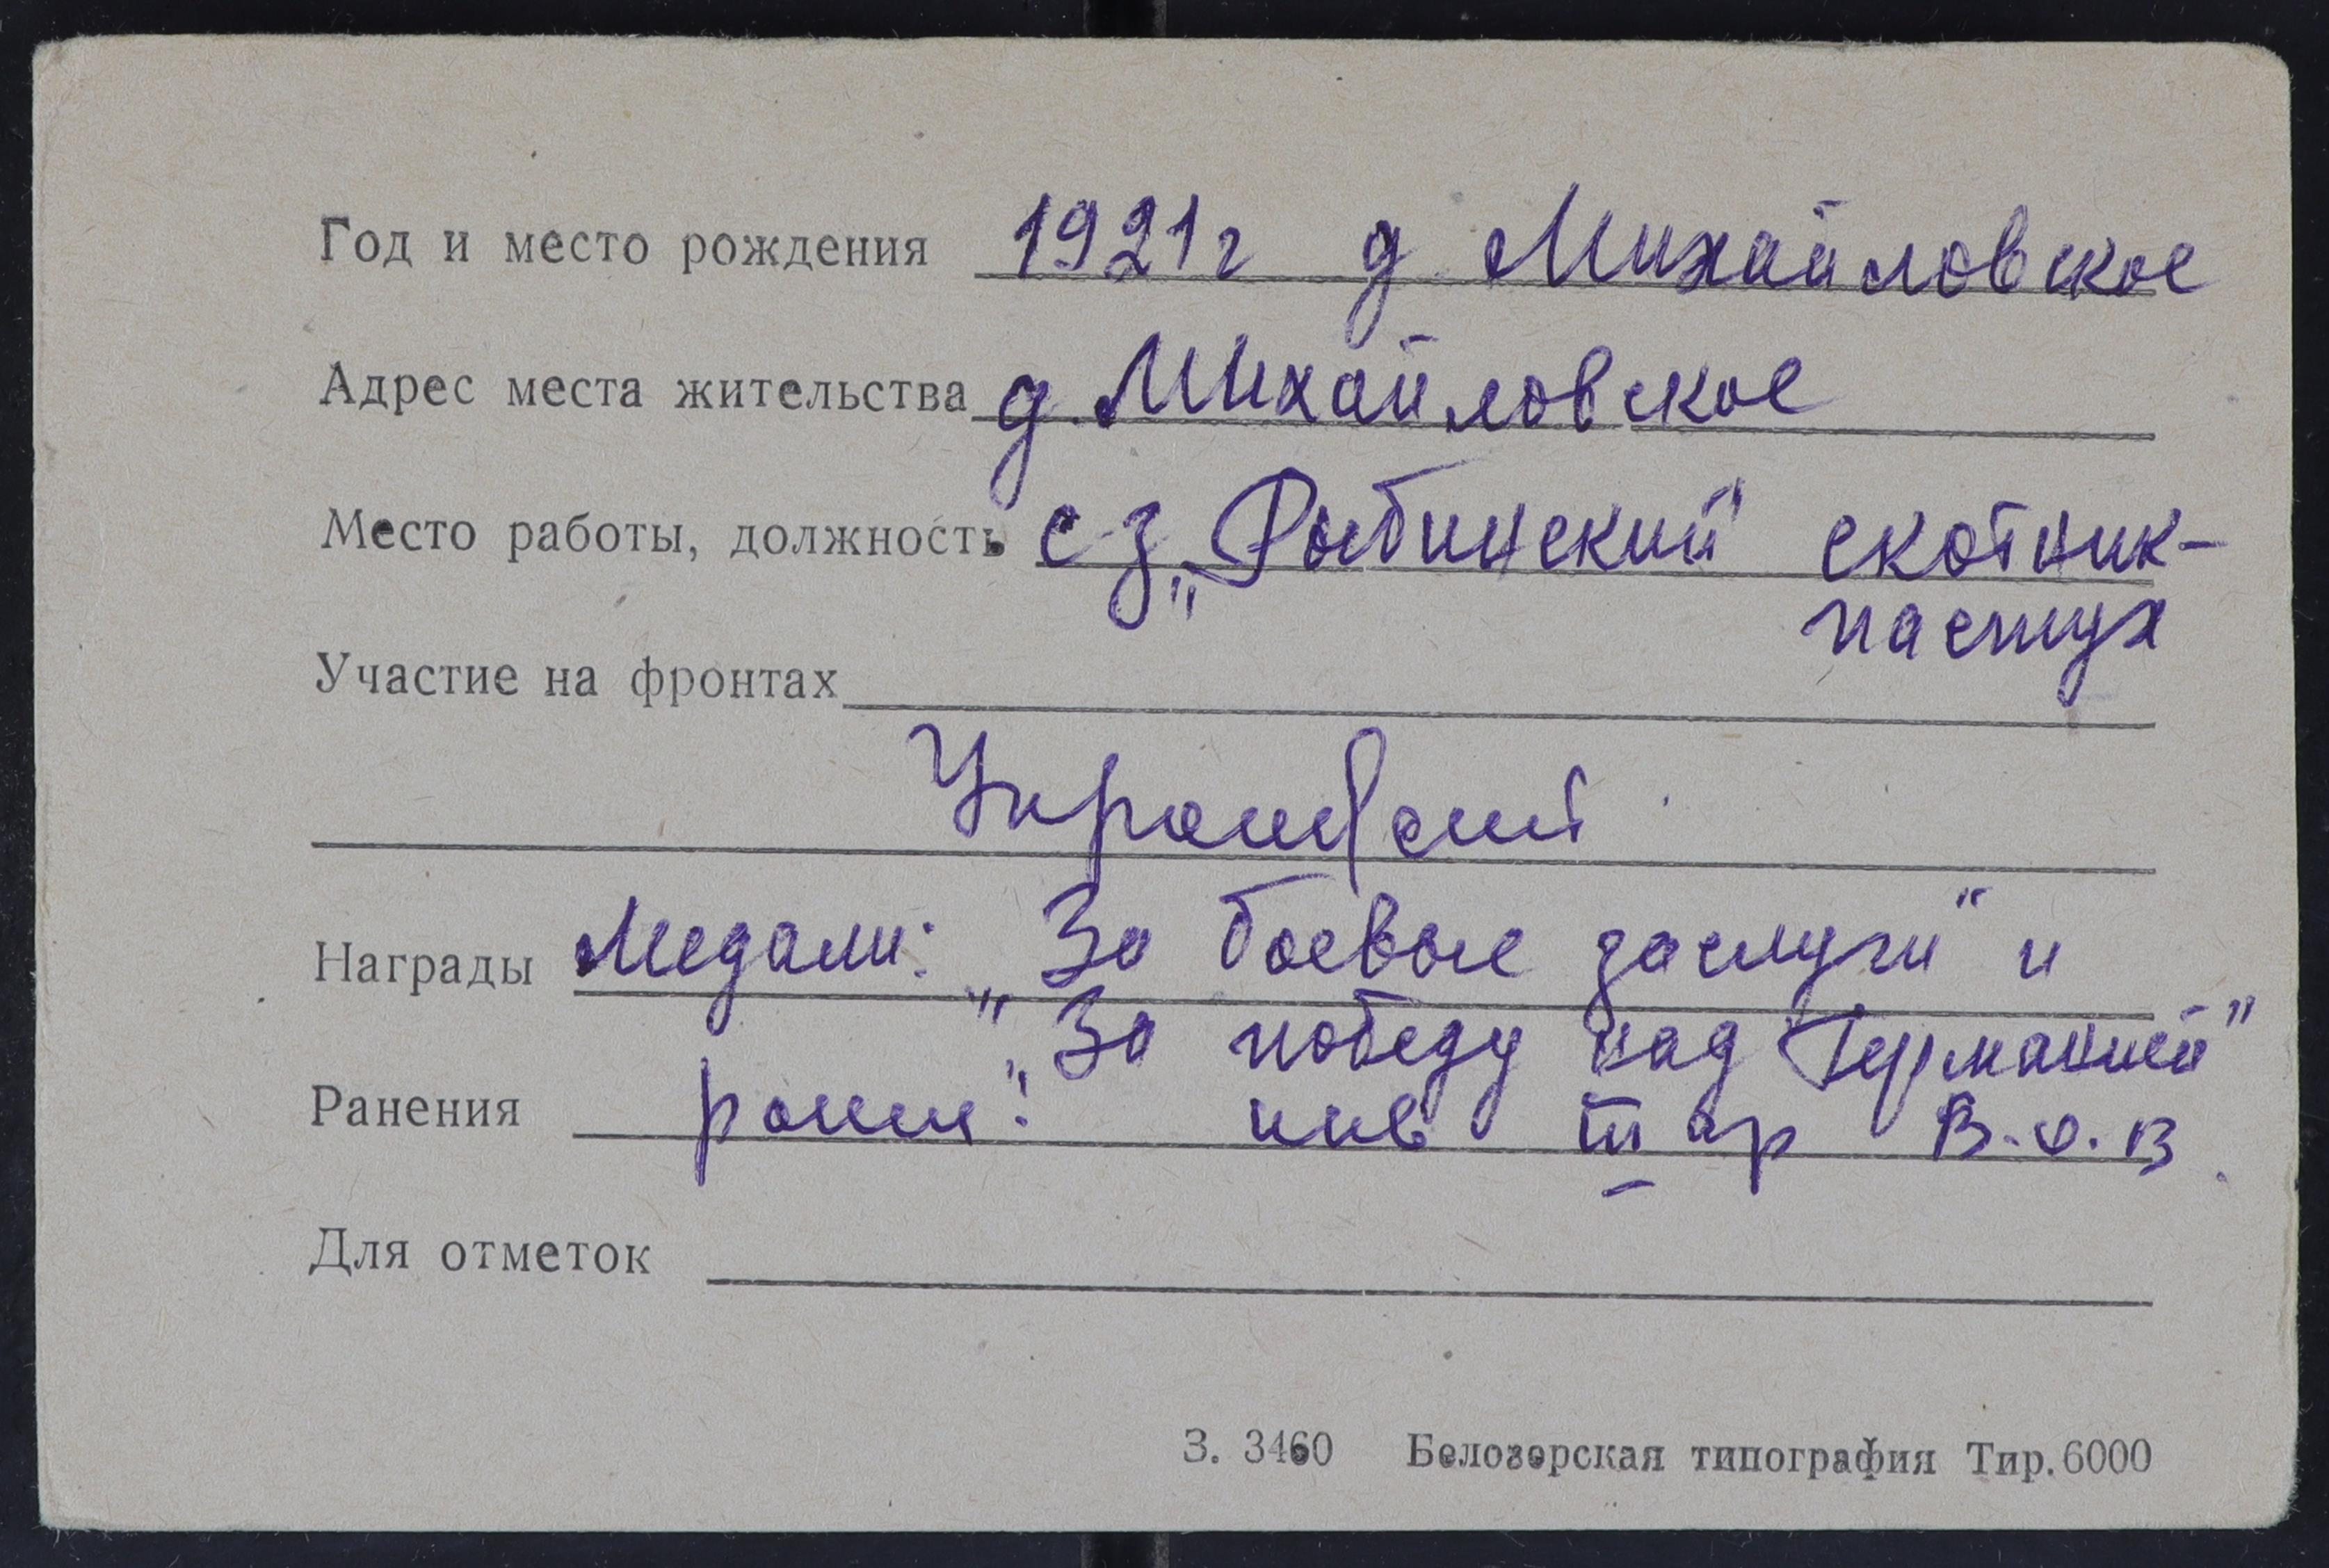 Год и место рождения 1921г д. Михайловское
Адрес места жительства д. Михайловское
Место работы, должность с-з „Рыбинский" скотник-
пастух
Участие на фронтах
Украинский
Награды Медали: „За боевые заслуги" и
„За победу над Германией"
Ранения ранен! инв III гр В.О.В.
Для отметок
З. 3460 Белозерская типография Тир. 6000